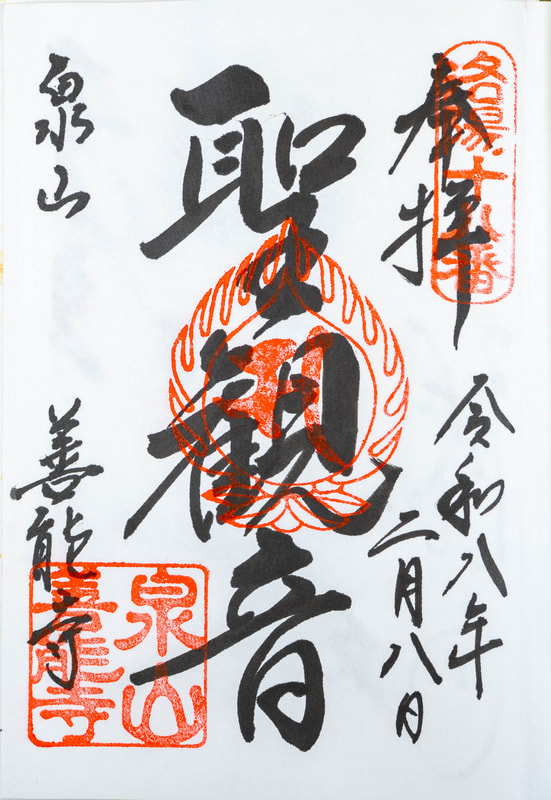 奉拝
洛陽十八番
令和八年
二月八日
聖観音
泉山
善能寺
泉山
善能寺